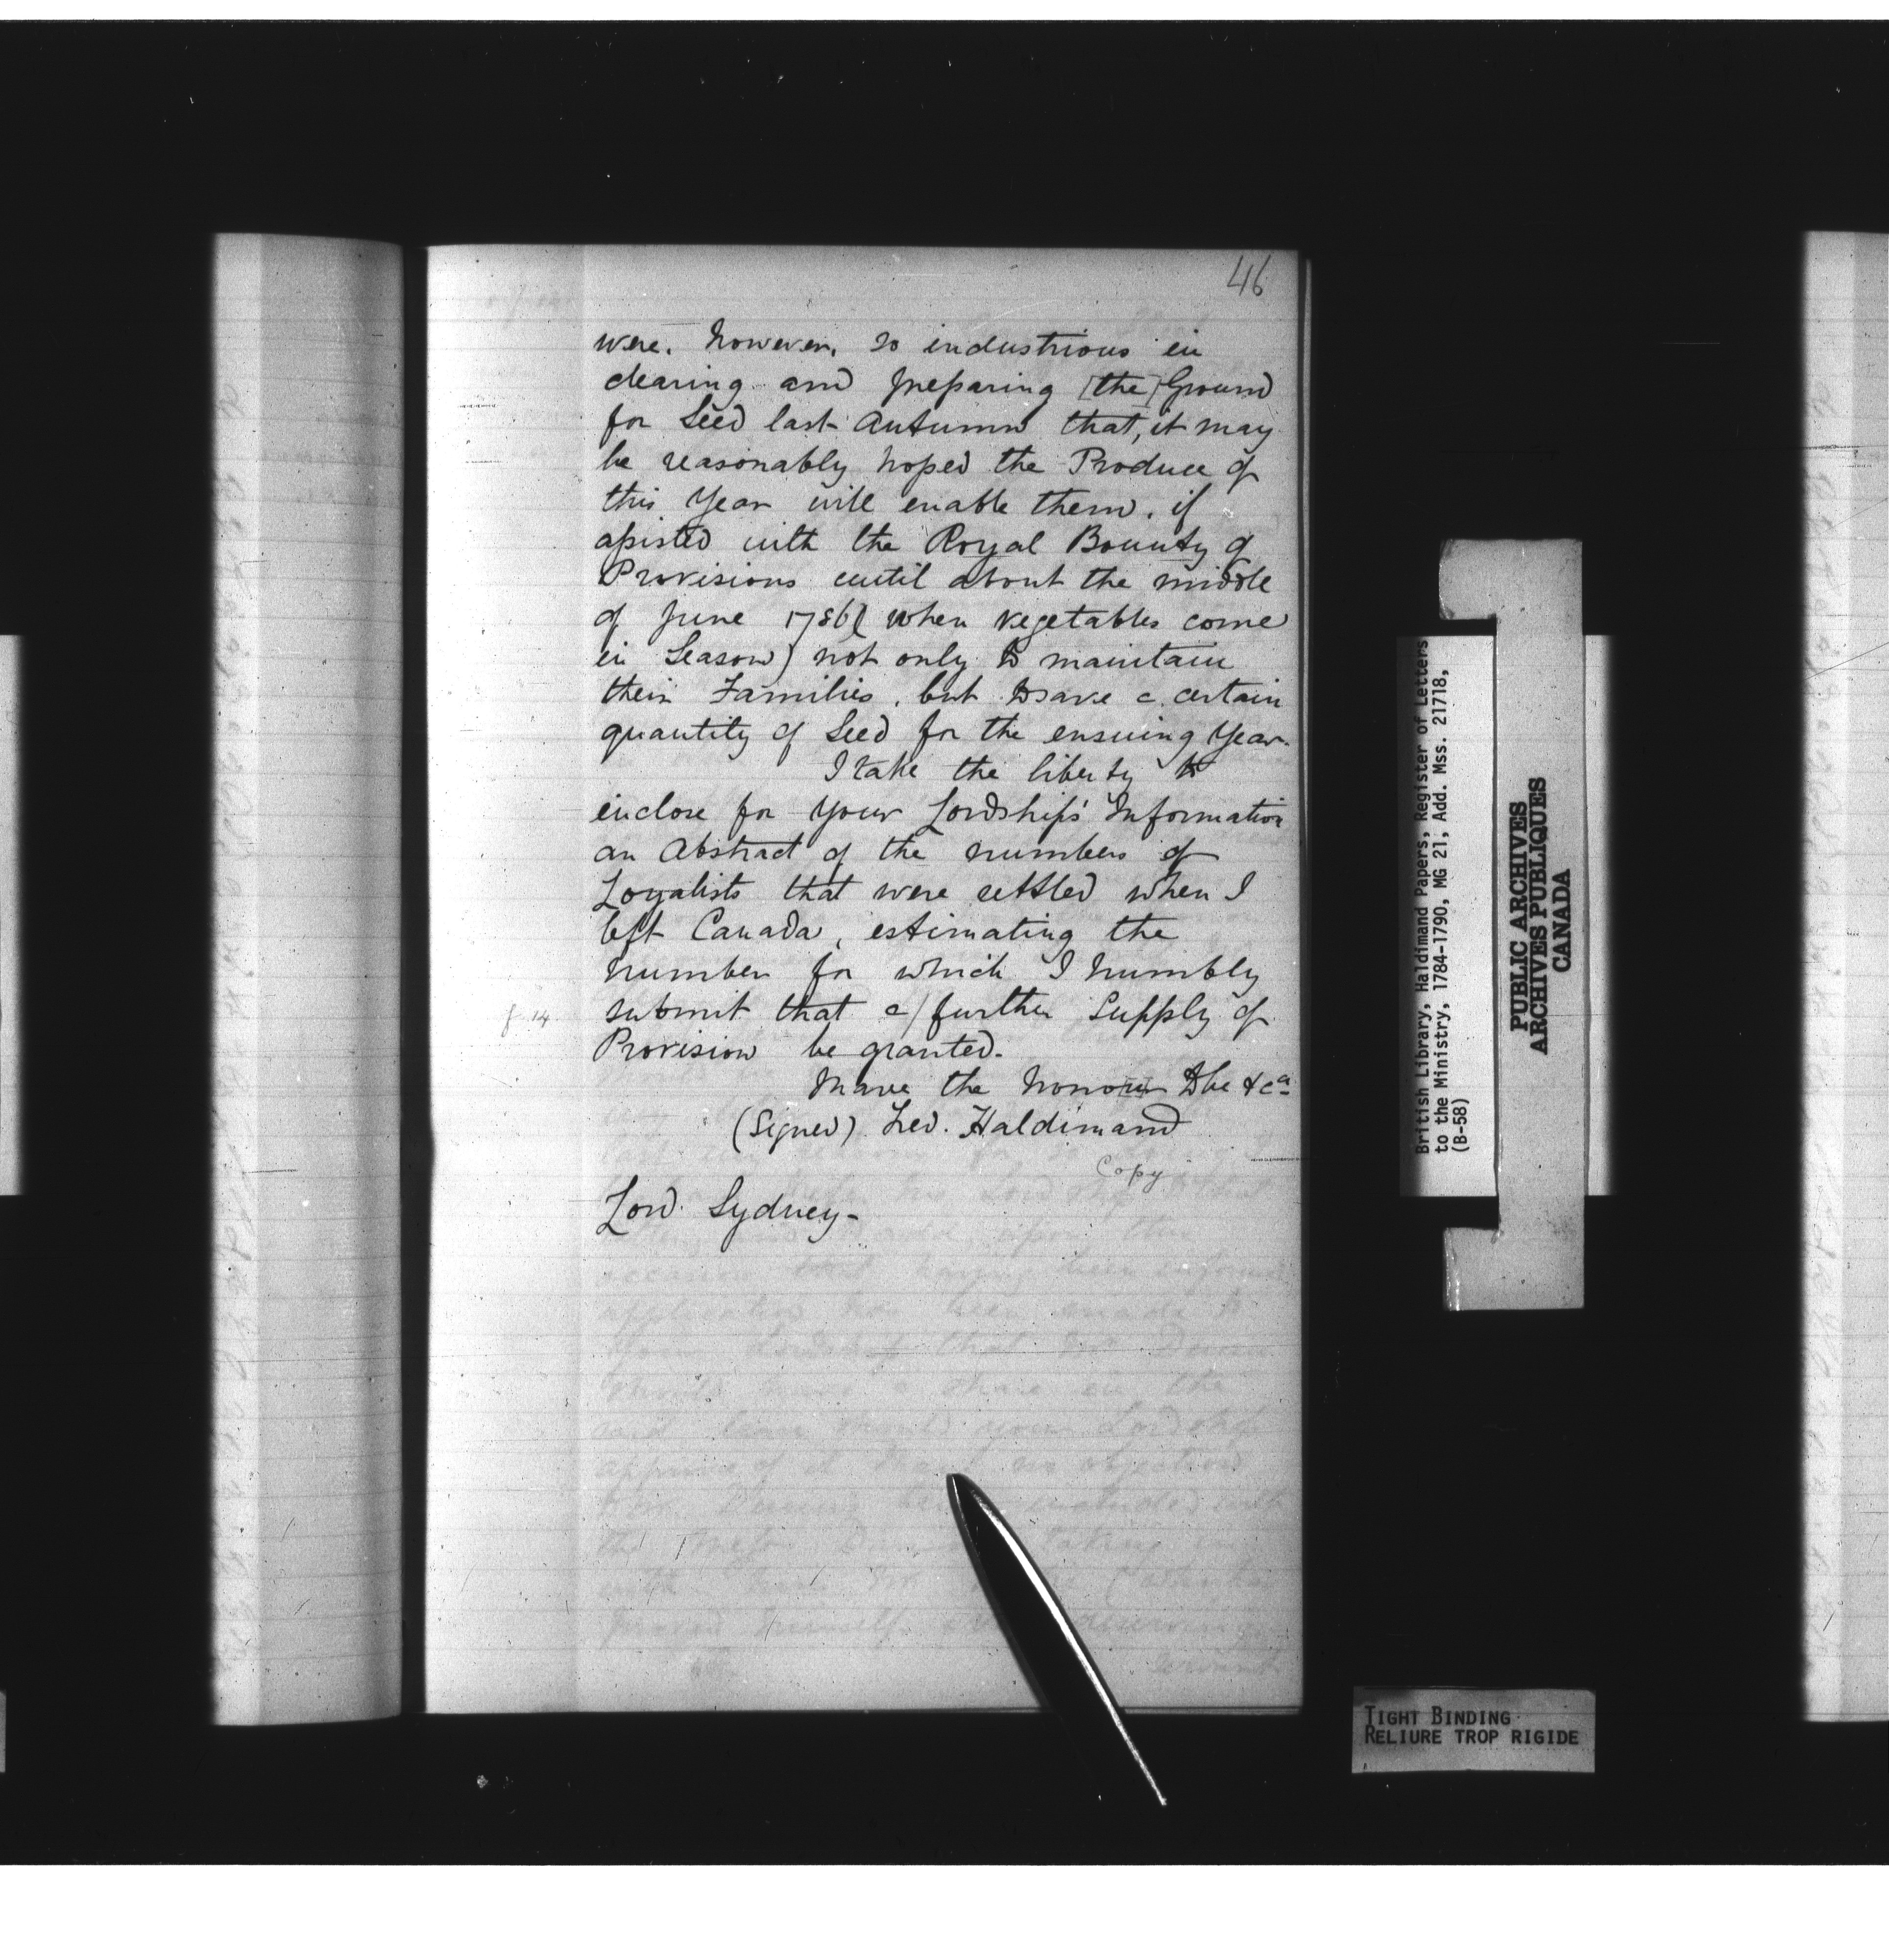 46
were, however, so industrious in
clearing and preparing [the] Ground
for Seed last Autumn that, it may
be reasonably hoped the Produce of
this Year will enable them, if
assisted with the Royal Bounty of
Provisions until about the middle
of June 1786 (when vegetables come
in Season) not only to maintain
their Families, but to save a certain
quantity of Seed for the ensuing Year.
I take the liberty to
enclose for Your Lordship's Information
an Abstract of the numbers of
Loyalists that were settled when I
left Canada, estimating the
number for which I humbly
f. 14. submit that a / further Supply of
Provision be granted.
I have the honour to be &ca
(Signed) Fred. Haldimand
Copy
Lord Sydney-
British Library, Haldimand Papers, Register of Letters
to the Ministry, 1784-1790, MG 21, Add. Mss. 21718,
(B-58)
PUBLIC ARCHIVES
ARCHIVES PUBLIQUES
CANADA
TIGHT BINDING
RELIURE TROP RIGIDE